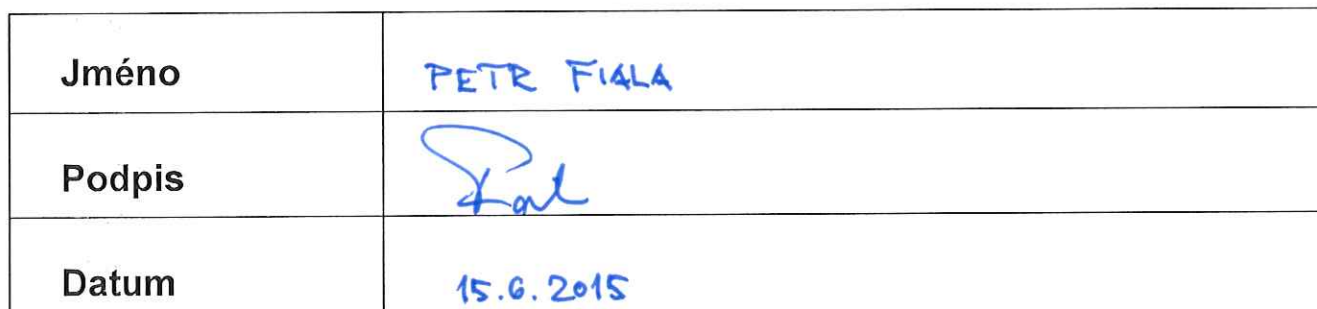 Jméno PETR FIALA
Podpis
Datum 15.6.2015